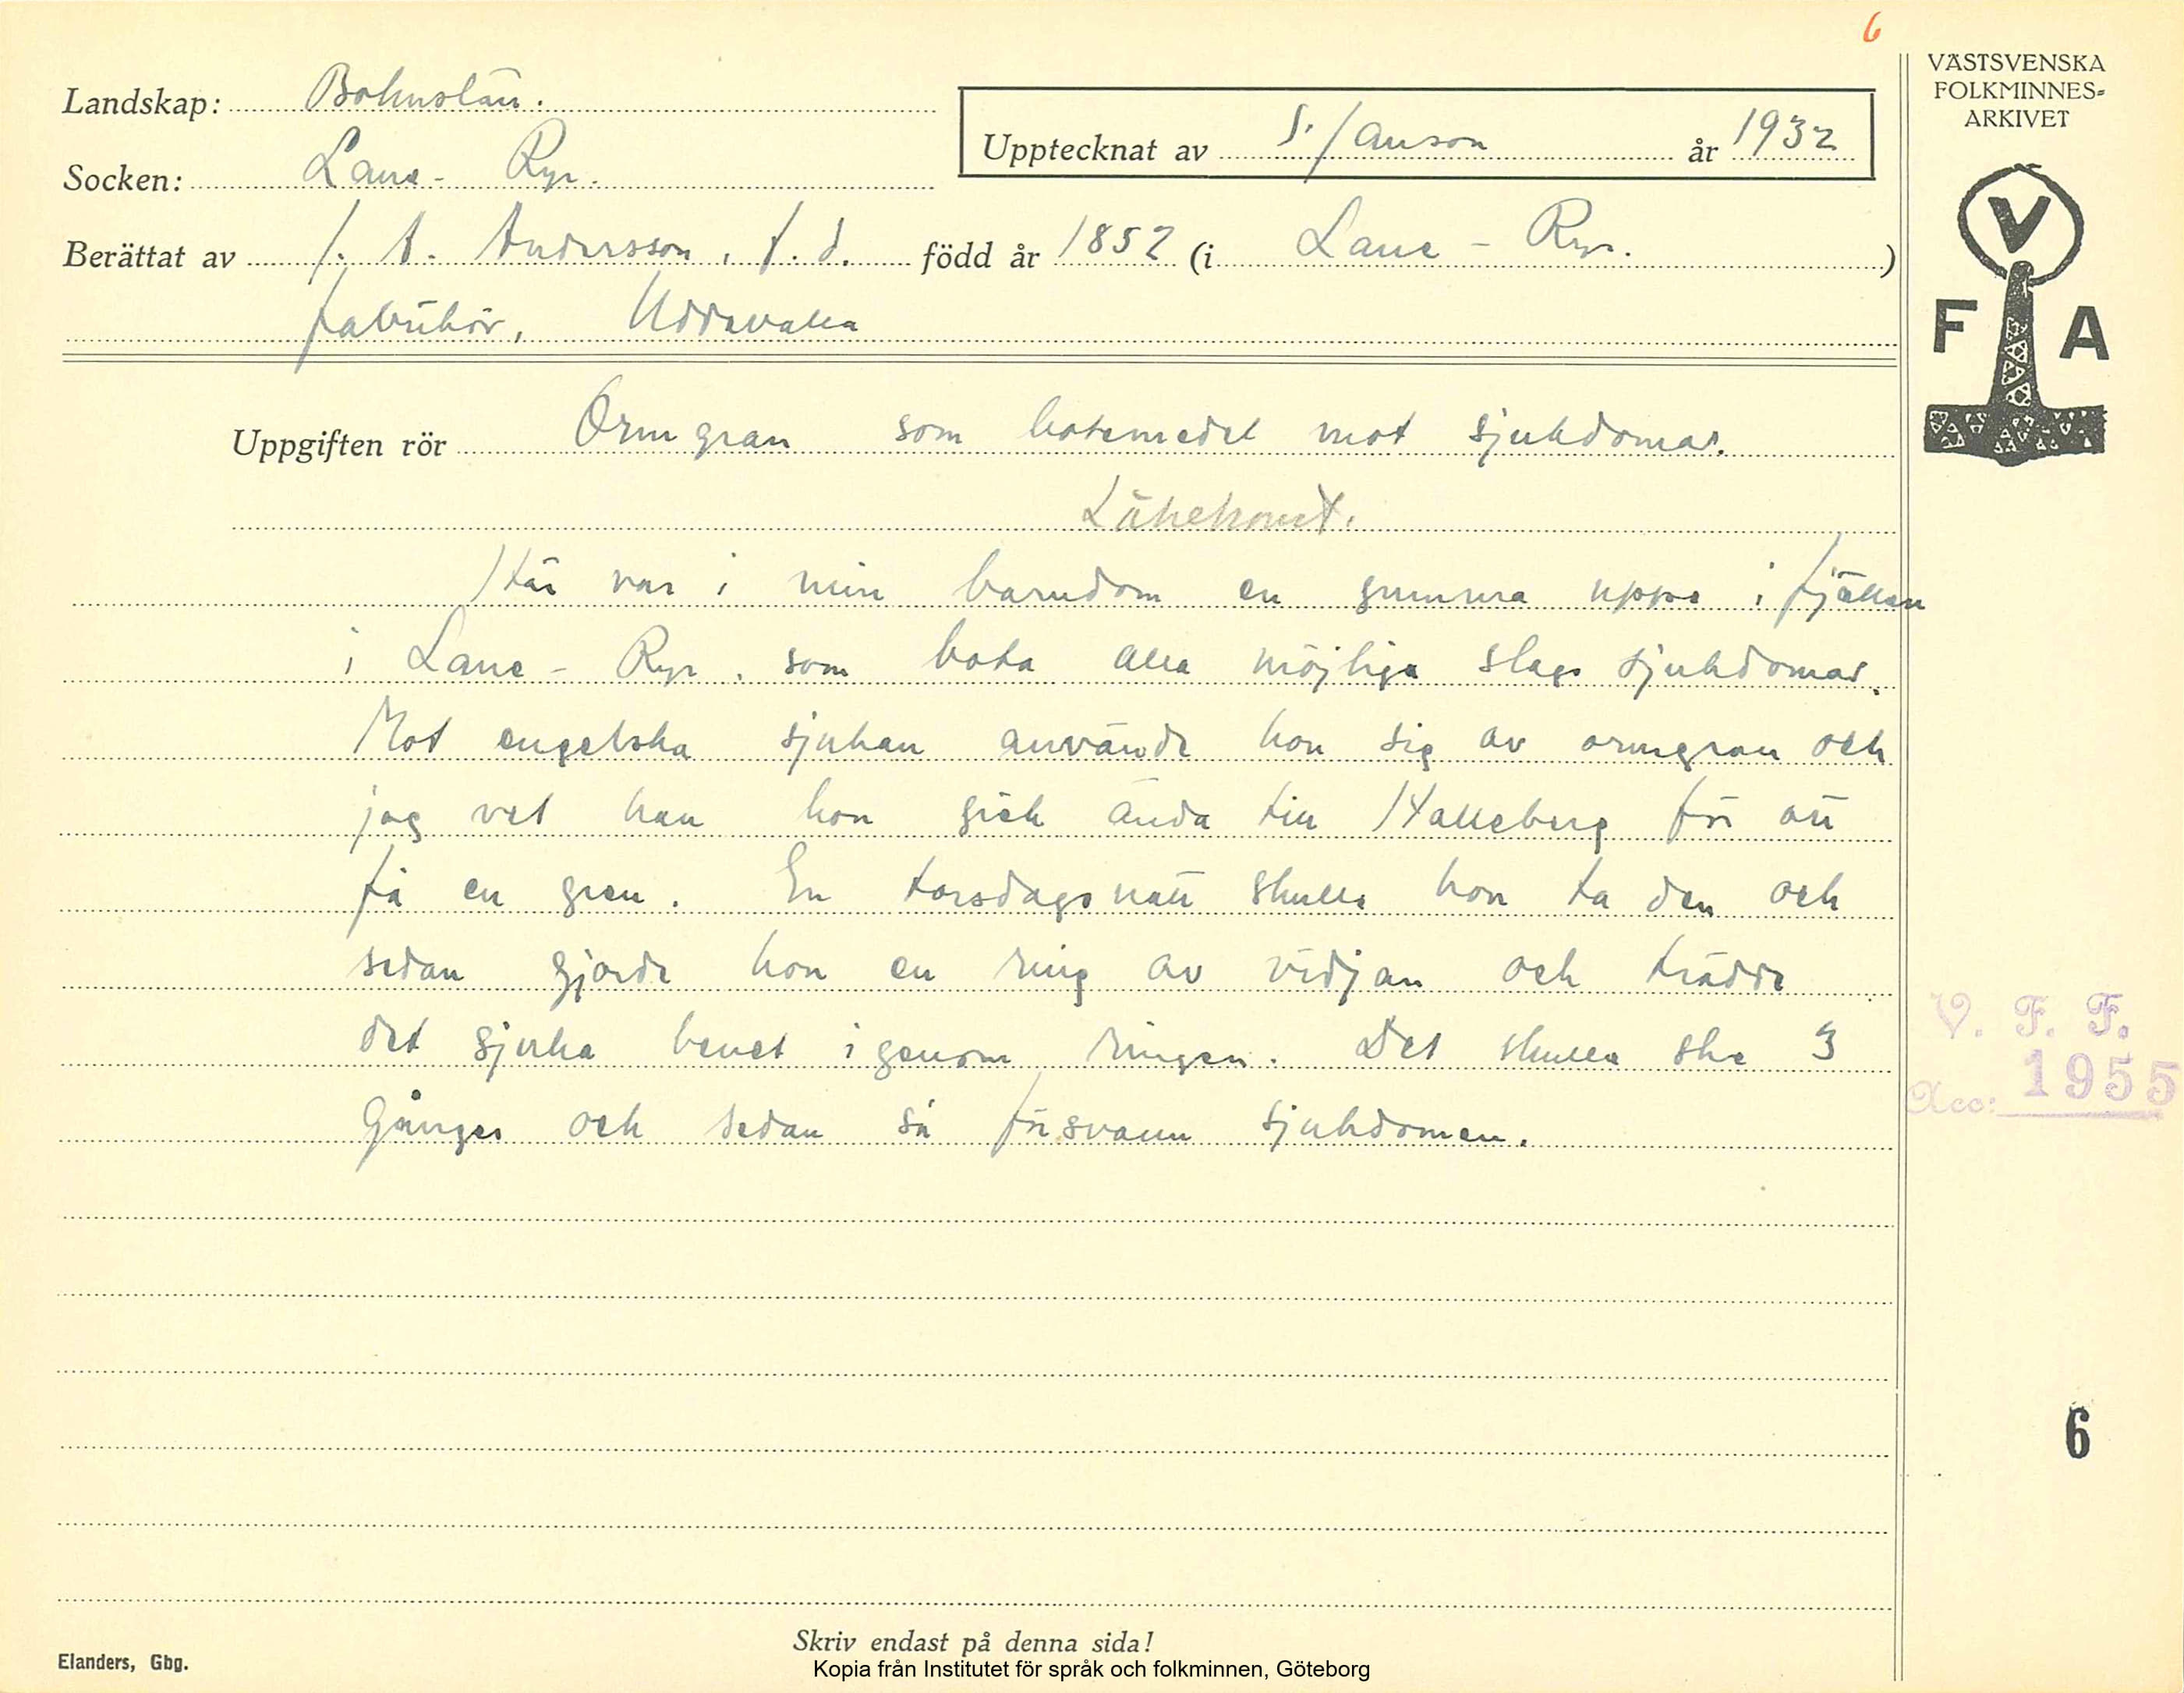 6
VÄSTSVENSKA
FOLKMINNES-
ARKIVET
Landskap: Bohuslän.
Upptecknat av S. Janson år 1932
Socken: Lane-Ryr.
Berättat av J. A. Andersson, f. d. född år 1852 (i Lane-Ryr.)
fabrikör, Uddevalla
V
F A
Uppgiften rör Ormgran som botemedel mot sjukdomar.
Läkekonst.
Här var i min barndom en gumma uppe i fjällen
i Lane-Ryr, som bota alla möjliga slags sjukdomar.
Mot engelska sjukan använde hon sig av ormgran och
jag vet hur hon gick ända till Halleberg för att
få en gren. En torsdagsnatt skulle hon ta den och
sedan gjorde hon en ring av vidjan och trädde
det sjuka benet igenom ringen. Det skulle ske 3
gånger och sedan så försvann sjukdomen.
V. F. F.
Acc: 1955
6
Skriv endast på denna sida!
Elanders, Gbg.
Kopia från Institutet för språk och folkminnen, Göteborg